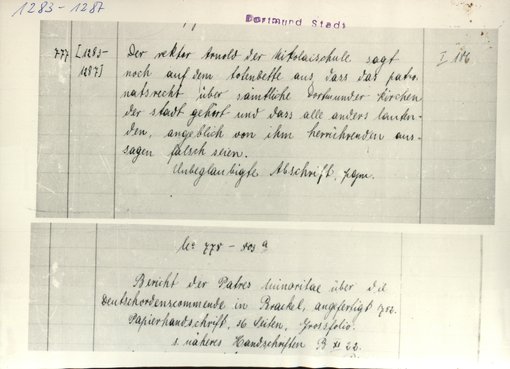 1283-1287
Dortmund Stadt
777 [1283- Der rektor Arnold der Nikolaischule sagt I 186
1287] noch auf dem totenbette aus, dass das patro-
natsrecht über sämtliche Dortmunder Kirchen
der stadt gehört und dass alle anders lauten-
den, angeblich von ihm herrührenden aus-
sagen falsch seien.
Unbeglaubigte Abschrift,
No 778 - 803 a
Bericht der Patres Minoritae über die
Deutschordenscommende in Brackel, angefertigt
Papierhandschrift, 16 Seiten, Grossfolio.
s. näheres Handschriften B 22.